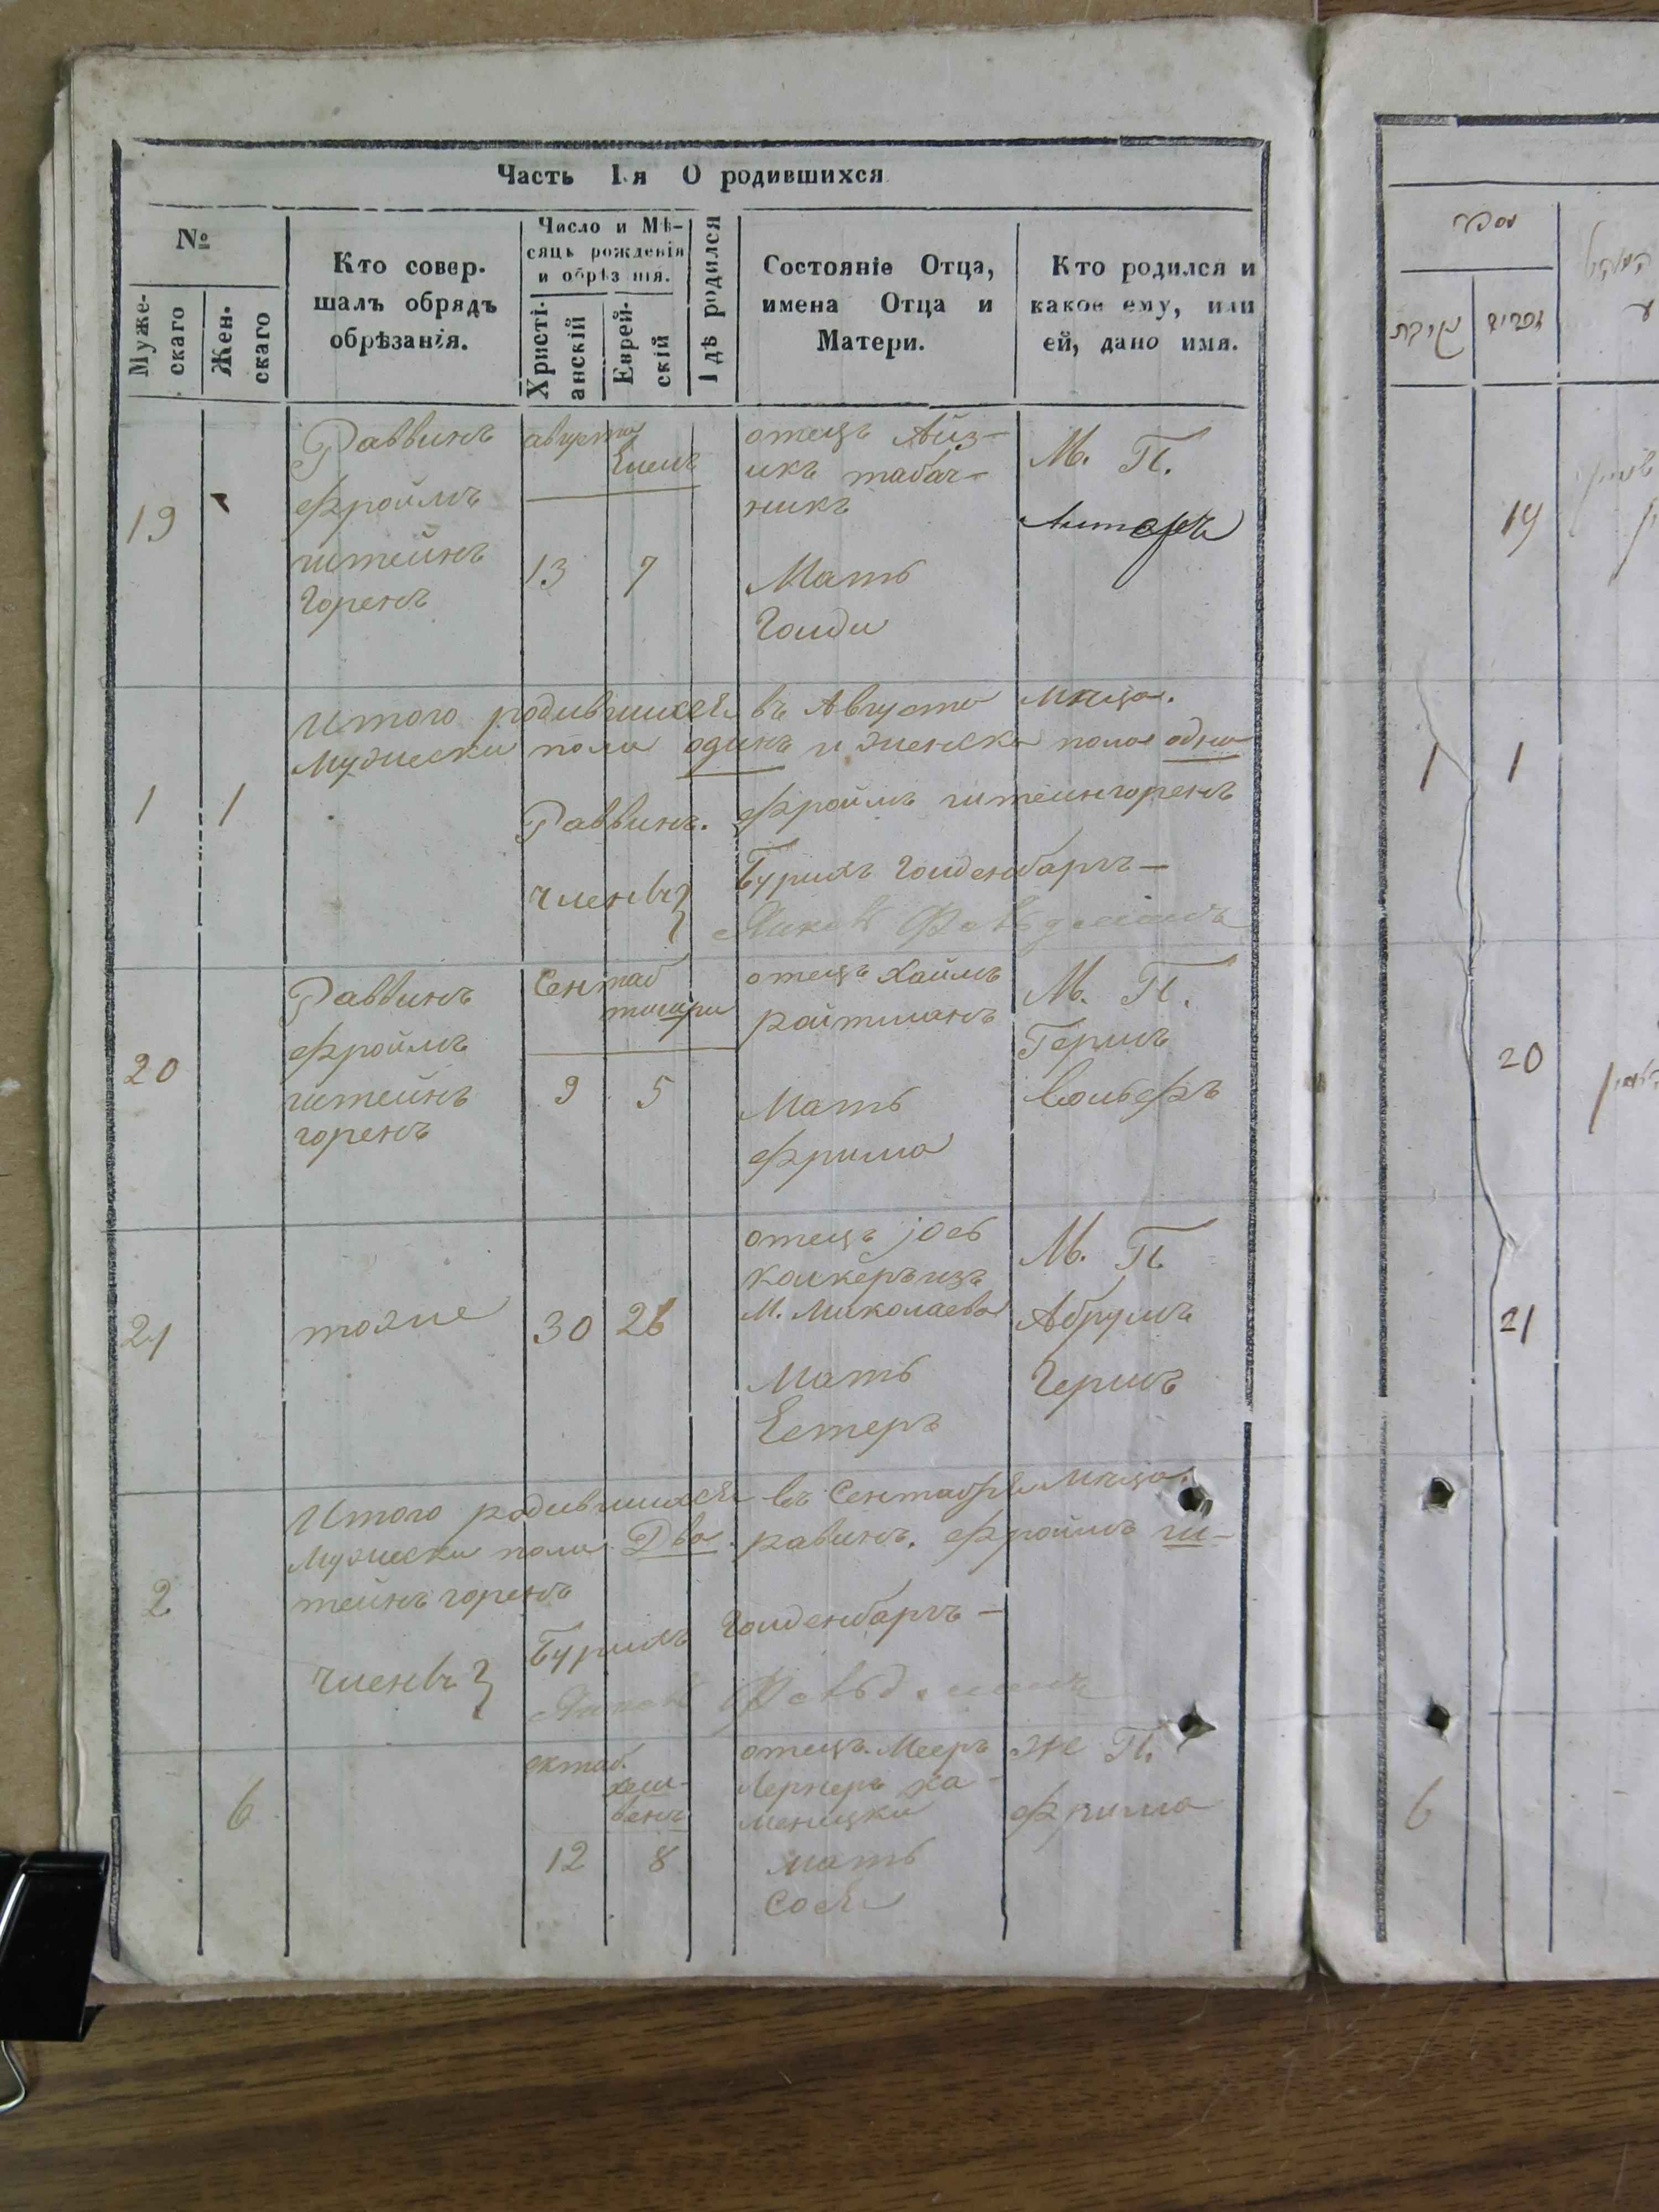 Часть I-я О родившихся
№
Муже-
скаго
Жен-
скаго
Кто совер-
шалъ обрядъ
обрѣзанія.
Число и Мѣ-
сяцъ рожденія
и обрѣз нія.
Христі-
анскій
Еврей-
скій
Гдѣ родился
Состояніе Отца,
имена Отца и
Матери.
Кто родился и
какое ему, или
ей, дано имя.
19
Раввинъ
Фроймъ
штейнъ
горенъ
августа
Елемъ
13 7
отецъ Айз-
икъ табач-
никъ
Мать
Голди
М. П.
Итого родившихся въ Августа мнца.
Мужески пола одинъ и женска пола одна
1 1
Раввинъ. Фроймъ штейнгоренъ
Члены Бурихъ Голденбаргъ
20
Раввинъ
Фроймъ
штейнъ
горенъ
Сентаб
тишри
9 5
отецъ Хаимъ
райтманъ
Мать
Фрима
М. П.
Гершъ
Вольфъ
21
тоже
30 26
отецъ Jось
Колкеръ изъ
М. Миколаева
Мать
Естеръ
М. П
Абрумъ
Гершъ
Итого родившихся въ Сентабря мнца.
Мужески пола Два. равинъ. Фроймъ ш-
тейнъ горенъ
2
Члены Бурихъ Голденбаргъ
6
октаб.
хеш-
венъ
12 8
отецъ Мееръ
Лернеръ ка-
меницки
мать
Сося
Же П.
Фрима
19
1 1
20
21
6